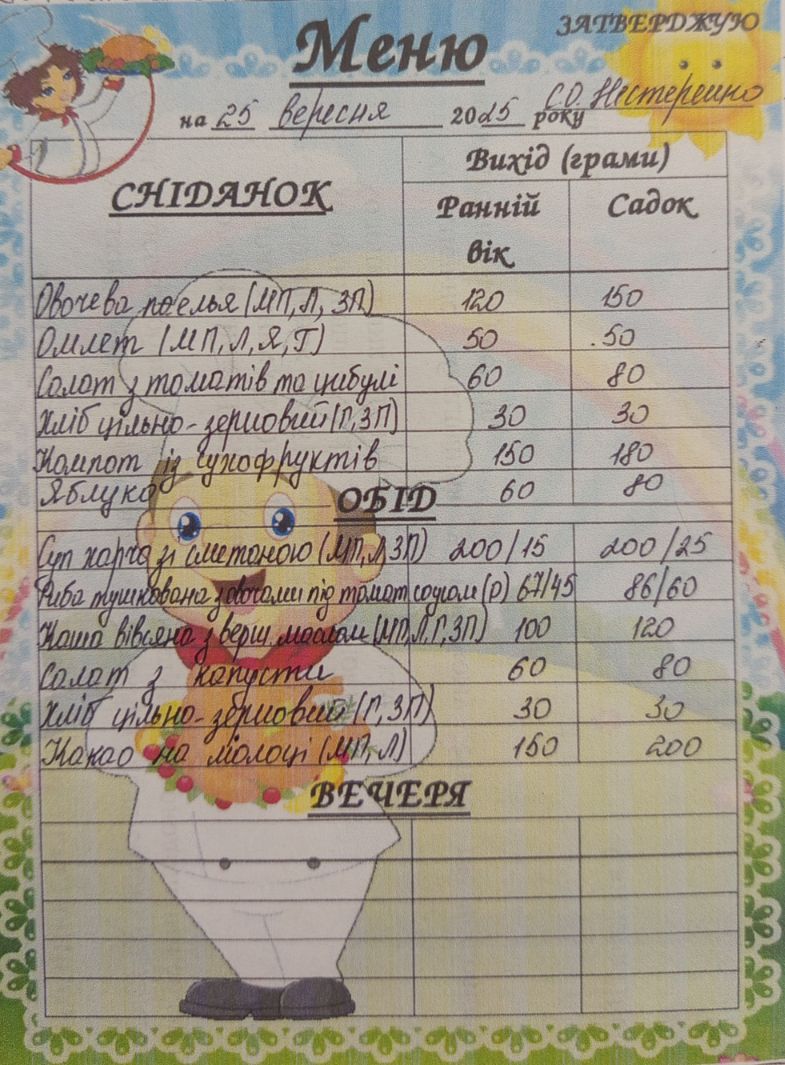 ЗАТВЕРДЖУЮ
Меню
С.О. Нестерешно
на 25 вересня 2025 року
СНІДАНОК Вихід (грами)
Ранній вік Садок
Овочева паелья (МП, Л, ЗП) 120 150
Омлет (МП, Л, Я, Г) 50 50
Салат з томатів та цибулі 60 80
Хліб цільно-зерновий (Г, ЗП) 30 30
Компот із сухофруктів 150 180
Яблуко 60 80
ОБІД
Суп харчо зі сметаною (МП, Л, ЗП) 200/15 200/25
Риба тушкована з овочами під томат соусом (Р) 67/45 86/60
Каша вівсяна з верш маслом (МП, Л, Г, ЗП) 100 120
Салат з капусти 60 80
Хліб цільно-зерновий (Г, ЗП) 30 30
Какао на молоці (МП, Л) 150 200
ВЕЧЕРЯ